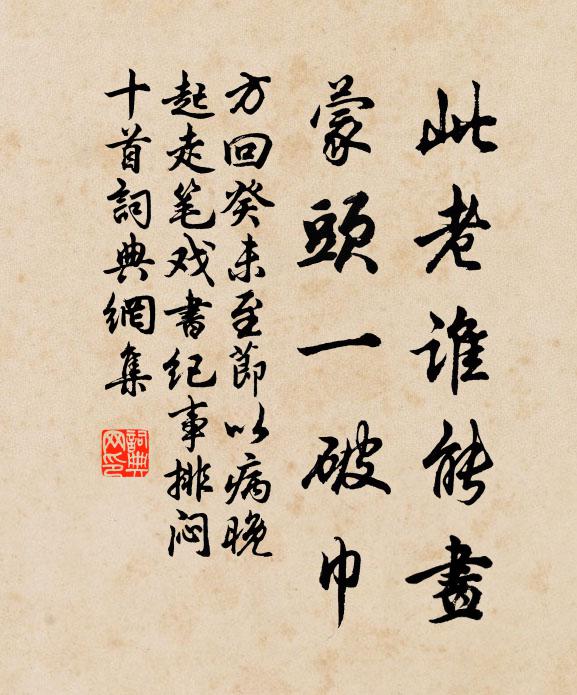 此老谁能畫
蒙頭一破巾
方回癸未至節以病晚
起走笔戏書纪事排闷
十首詞典網集
詞典
网印